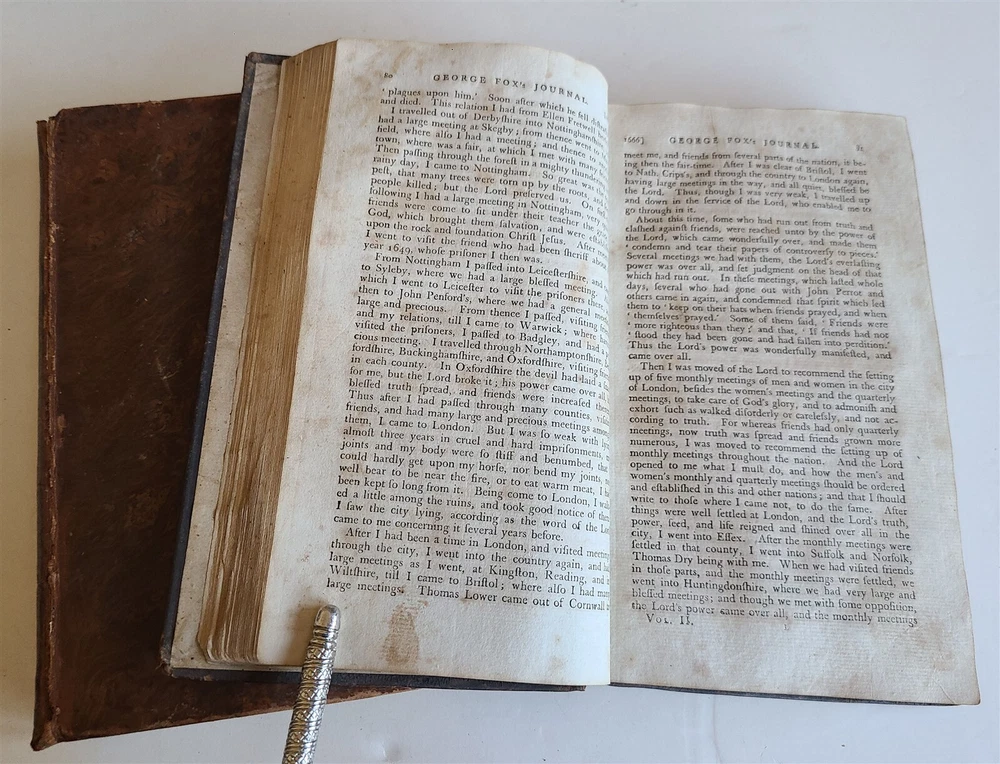 80 GEORGE FOX's JOURNAL.
' plagues upon him.' Soon after which he fell
and died. This relation I had from Ellen Fretwell
I travelled out of Derbyſhire into Nottinghamſhire,
had a large meeting at Skegby; from thence went to
field, where alſo I had a meeting; and thence to
town, where was a fair, at which I met with many
Then paſſing through the foreſt in a mighty thundering
rainy day, I came to Nottingham. So great was the
peſt, that many trees were torn up by the roots, and
people killed; but the Lord preſerved us. On
following I had a large meeting in Nottingham, very
friends were come to ſit under their teacher the grace
God, which brought them ſalvation, and were eſtabliſhed
upon the rock and foundation Chriſt Jeſus. After
I went to viſit the friend who had been ſheriff about
year 1649, whoſe priſoner I then was.
From Nottingham I paſſed into Leiceſterſhire, and
to Syleby, where we had a large bleſſed meeting.
which I went to Leiceſter to viſit the priſoners there,
then to John Penford's, where we had a general
large and precious. From thence I paſſed, viſiting
and my relations, till I came to Warwick; where
viſited the priſoners, I paſſed to Badgley, and had a
cious meeting. I travelled through Northamptonſhire,
fordſhire, Buckinghamſhire, and Oxfordſhire, viſiting
in each county. In Oxfordſhire the devil had laid a
for me, but the Lord broke it; his power came over all,
bleſſed truth ſpread, and friends were increaſed
Thus after I had paſſed through many counties, viſiting
friends, and had many large and precious meetings among
them, I came to London. But I was ſo weak with
almoſt three years in cruel and hard impriſonments,
joints and my body were ſo ſtiff and benumbed, that
could hardly get upon my horſe, nor bend my joints,
well bear to be near the fire, or to eat warm meat, I
been kept ſo long from it. Being come to London, I
ed a little among the ruins, and took good notice of them.
I ſaw the city lying, according as the word of the Lord
came to me concerning it ſeveral years before.
After I had been a time in London, and viſited meetings
through the city, I went into the country again, and had
large meetings as I went, at Kingſton, Reading, and
Wiltſhire, till I came to Briſtol; where alſo I had many
large meetings. Thomas Lower came out of Cornwall to
1666] GEORGE FOX's JOURNAL. 81
meet me, and friends from ſeveral parts of the nation, it be-
ing then the fair-time. After I was clear of Briſtol, I went
to Nath. Crips's, and through the country to London again,
having large meetings in the way, and all quiet, bleſſed be
the Lord. Thus, though I was very weak, I travelled up
and down in the ſervice of the Lord, who enabled me to
go through in it.
About this time, ſome who had run out from truth and
claſhed againſt friends, were reached unto by the power of
the Lord, which came wonderfully over, and made them
' condemn and tear their papers of controverſy to pieces.'
Several meetings we had with them, the Lord's everlaſting
power was over all, and ſet judgment on the head of that
which had run out. In theſe meetings, which laſted whole
days, ſeveral who had gone out with John Perrot and
others came in again, and condemned that ſpirit which led
them to ' keep on their hats when friends prayed, and when
' themſelves prayed.' Some of them ſaid, ' Friends were
' more righteous than they;' and that, ' If friends had not
' ſtood they had been gone and had fallen into perdition.'
Thus the Lord's power was wonderfully manifeſted, and
came over all.
Then I was moved of the Lord to recommend the ſetting
up of five monthly meetings of men and women in the city
of London, beſides the women's meetings and the quarterly
meetings, to take care of God's glory, and to admoniſh and
exhort ſuch as walked diſorderly or careleſsly, and not ac-
cording to truth. For whereas friends had only quarterly
meetings, now truth was ſpread and friends grown more
numerous, I was moved to recommend the ſetting up of
monthly meetings throughout the nation. And the Lord
opened to me what I muſt do, and how the men's and
women's monthly and quarterly meetings ſhould be ordered
and eſtabliſhed in this and other nations; and that I ſhould
write to thoſe where I came not, to do the ſame. After
things were well ſettled at London, and the Lord's truth,
power, ſeed, and life reigned and ſhined over all in the
city, I went into Eſſex. After the monthly meetings were
ſettled in that county, I went into Suffolk and Norfolk,
Thomas Dry being with me. When we had viſited friends
in thoſe parts, and the monthly meetings were ſettled, we
went into Huntingdonſhire, where we had very large and
bleſſed meetings; and though we met with ſome oppoſition,
the Lord's power came over all, and the monthly meetings
VOL. II.